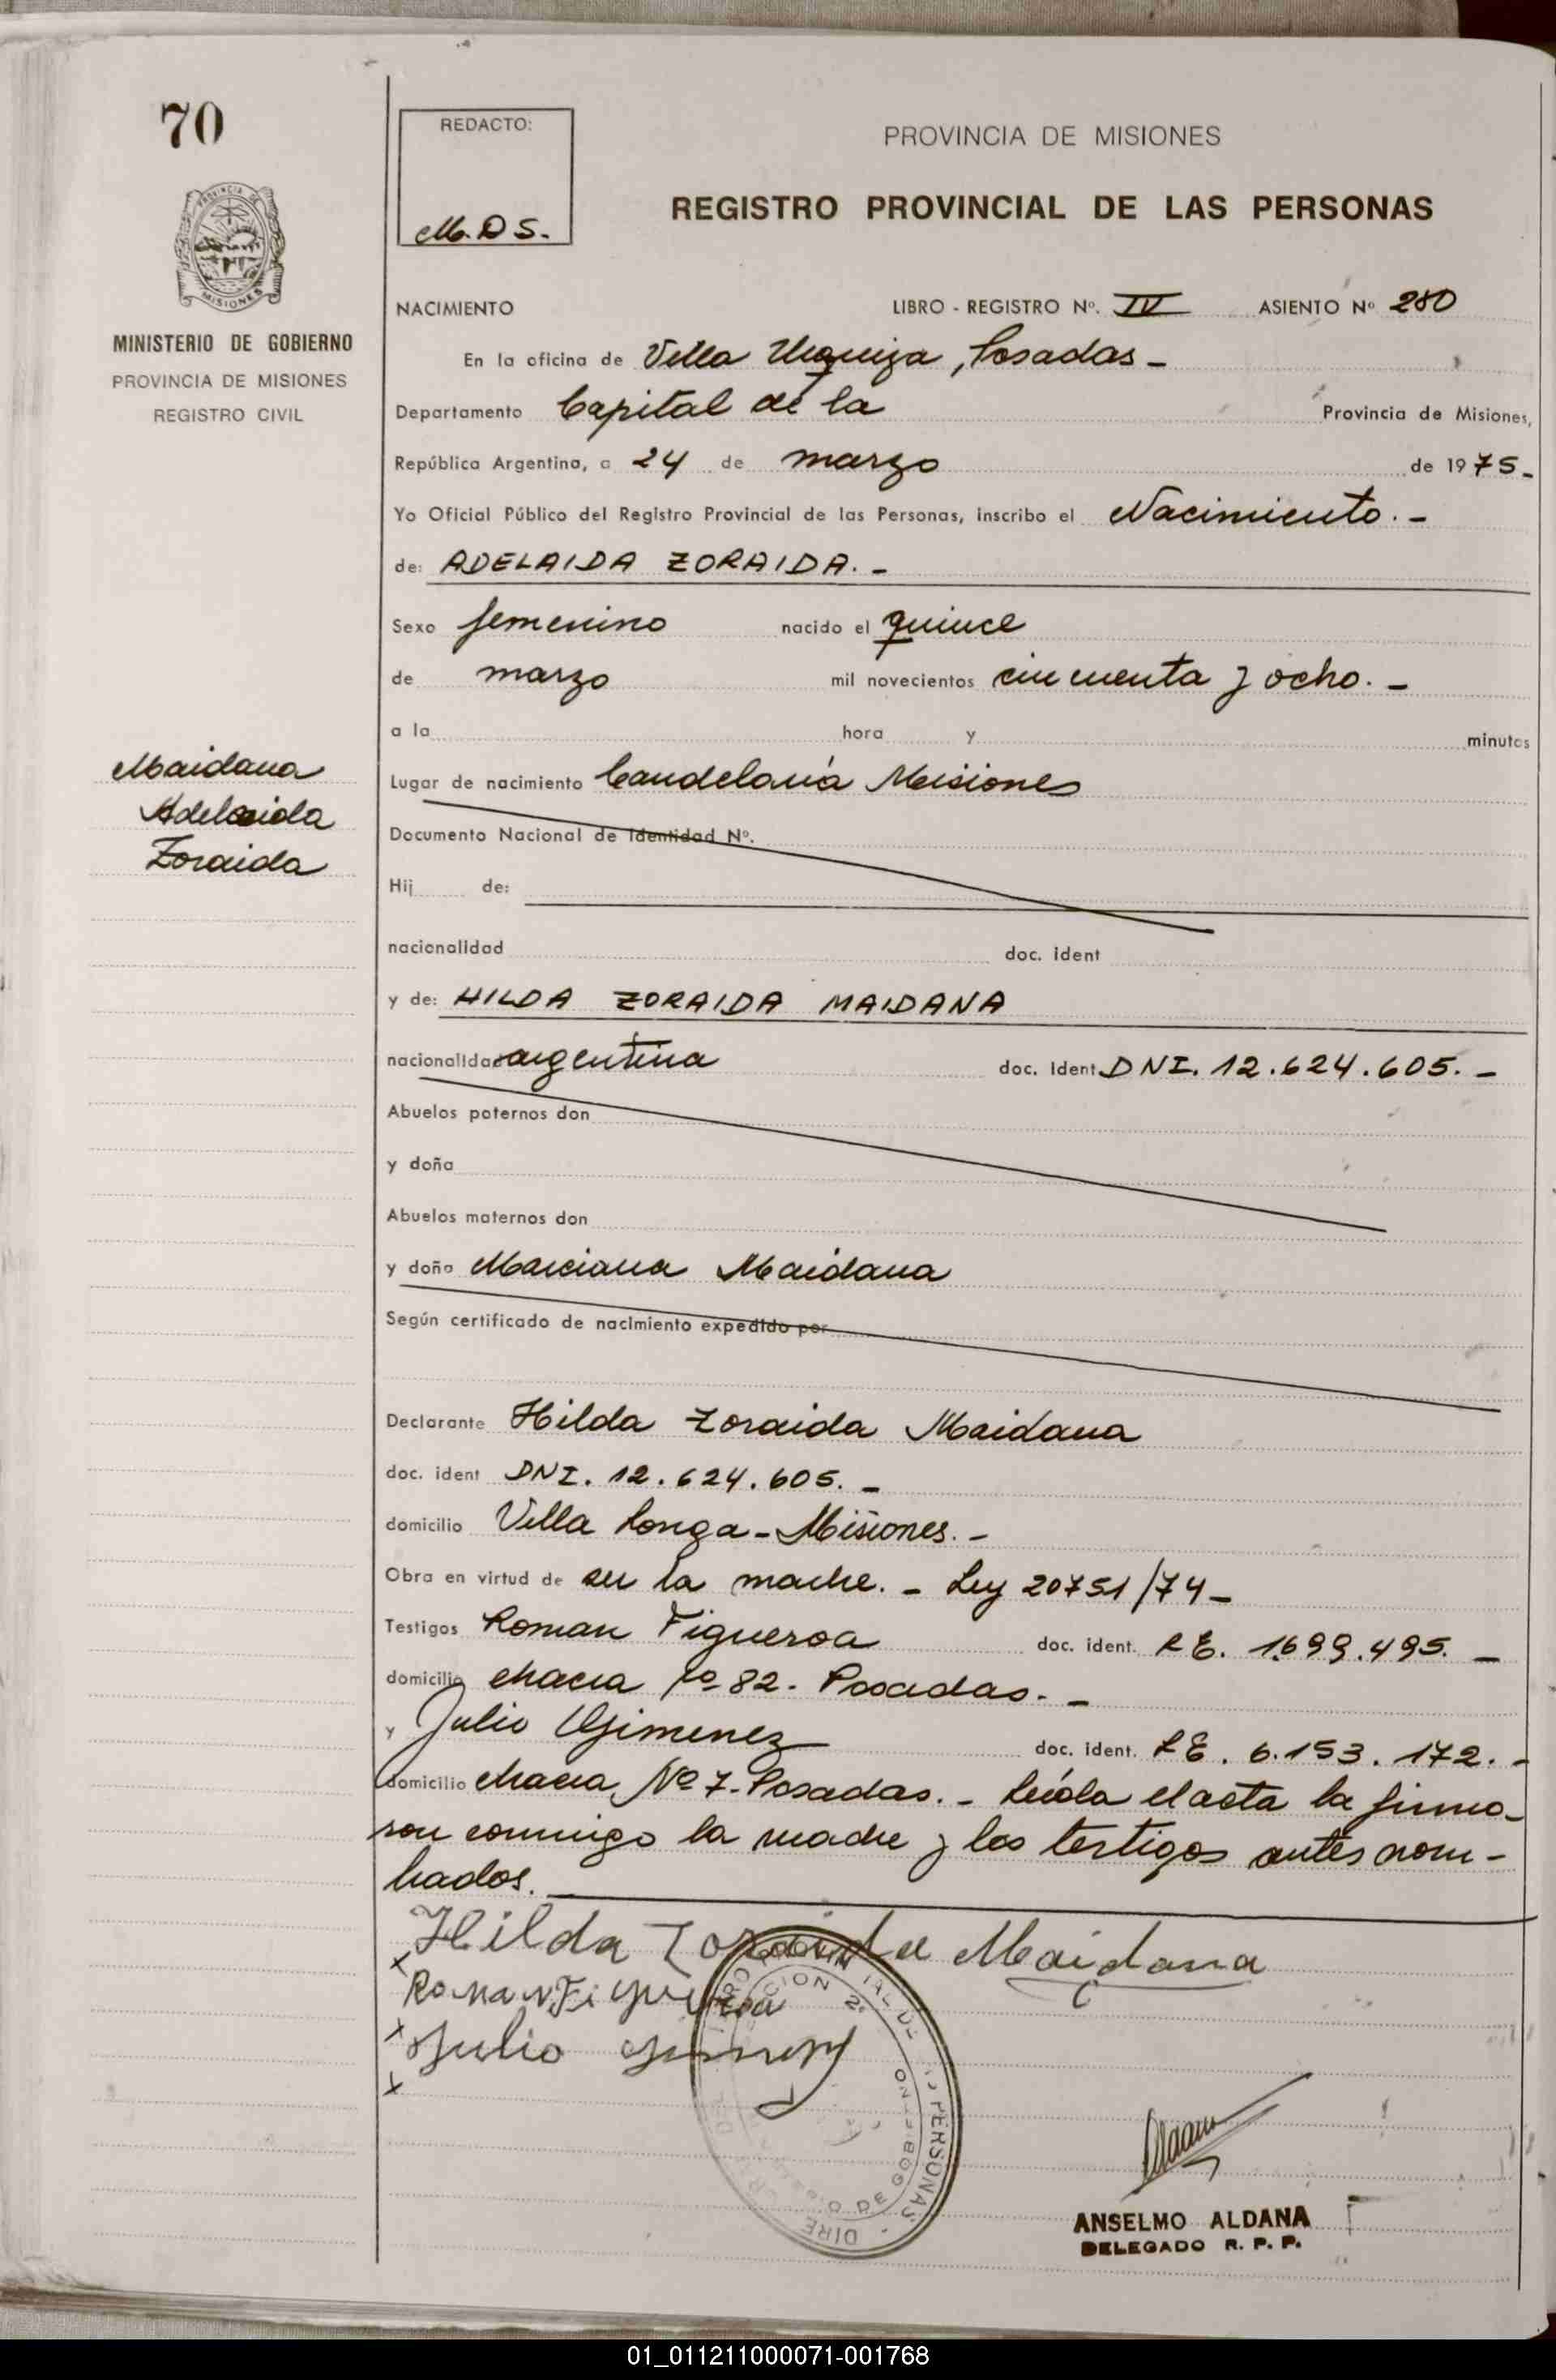 70
REDACTO:
M. D S.
PROVINCIA DE MISIONES
REGISTRO PROVINCIAL DE LAS PERSONAS
MISIONES
MINISTERIO DE GOBIERNO
PROVINCIA DE MISIONES
REGISTRO CIVIL
NACIMIENTO LIBRO - REGISTRO Nº. IV ASIENTO Nº 280
En la oficina de Villa Urquiza, Posadas -
Departamento Capital de la Provincia de Misiones,
República Argentina, a 24 de marzo de 1975 -
Yo Oficial Público del Registro Provincial de las Personas, inscribo el Nacimiento. -
de: ADELAIDA ZORAIDA. -
Sexo femenino nacido el quince
de marzo mil novecientos cincuenta y ocho. -
a la hora y minutos
Maidana
Adelaida
Zoraida
Lugar de nacimiento Candelaria Misiones
Documento Nacional de Identidad Nº.
Hij de:
nacionalidad doc. ident
y de: HILDA ZORAIDA MAIDANA
nacionalidad argentina doc. Ident DNI. 12.624.605. -
Abuelos paternos don
y doña
Abuelos maternos don
y doña Marciana Maidana
Según certificado de nacimiento expedido por
Declarante Hilda Zoraida Maidana
doc. ident DNI. 12.624.605. -
domicilio Villa Longa - Misiones. -
Obra en virtud de ser la madre. - Ley 20751/74 -
Testigos Roman Figueroa doc. ident. L E. 1.699.495. -
domicilio chacra Nº 82. Posadas. -
y Julio Gimenez doc. ident. L E. 6.153.172. -
domicilio chacra Nº 7. Posadas. - Leída el acta la firma-
ron conmigo la madre y los testigos antes nom-
brados.
Hilda Zoraida Maidana
x Roman Figueroa
x Julio Gimenez
x
ANSELMO ALDANA
DELEGADO R. P. P.
01_011211000071-001768